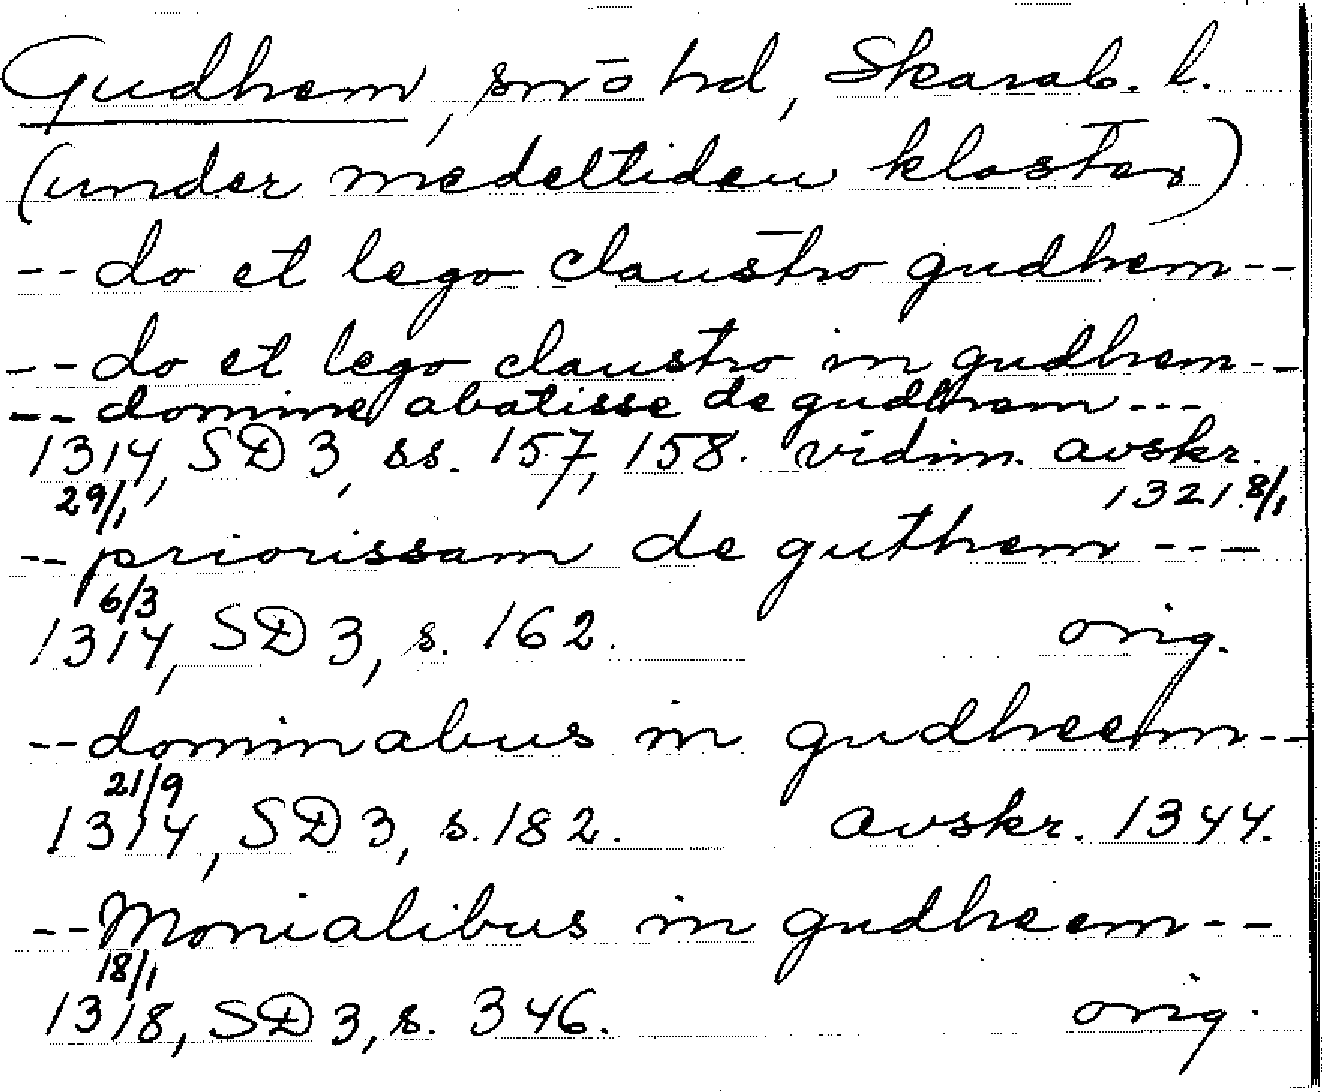 Gudhem, sn o hd, Skarab. l.
(under medeltiden kloster)
-- do et lego claustro gudhem --
-- do et lego claustro in gudhem --
-- domine abatisse de gudhem ---
1314, SD 3, ss. 157, 158. vidim. avskr.
29/1 1321 8/1
-- priorissam de guthem ---
6/3
1314, SD 3, s. 162. orig.
-- dominabus in gudheem --
21/9
1314, SD 3, s. 182. avskr. 1344.
-- Monialibus in gudheem --
18/1
1318, SD 3, s. 346. orig.